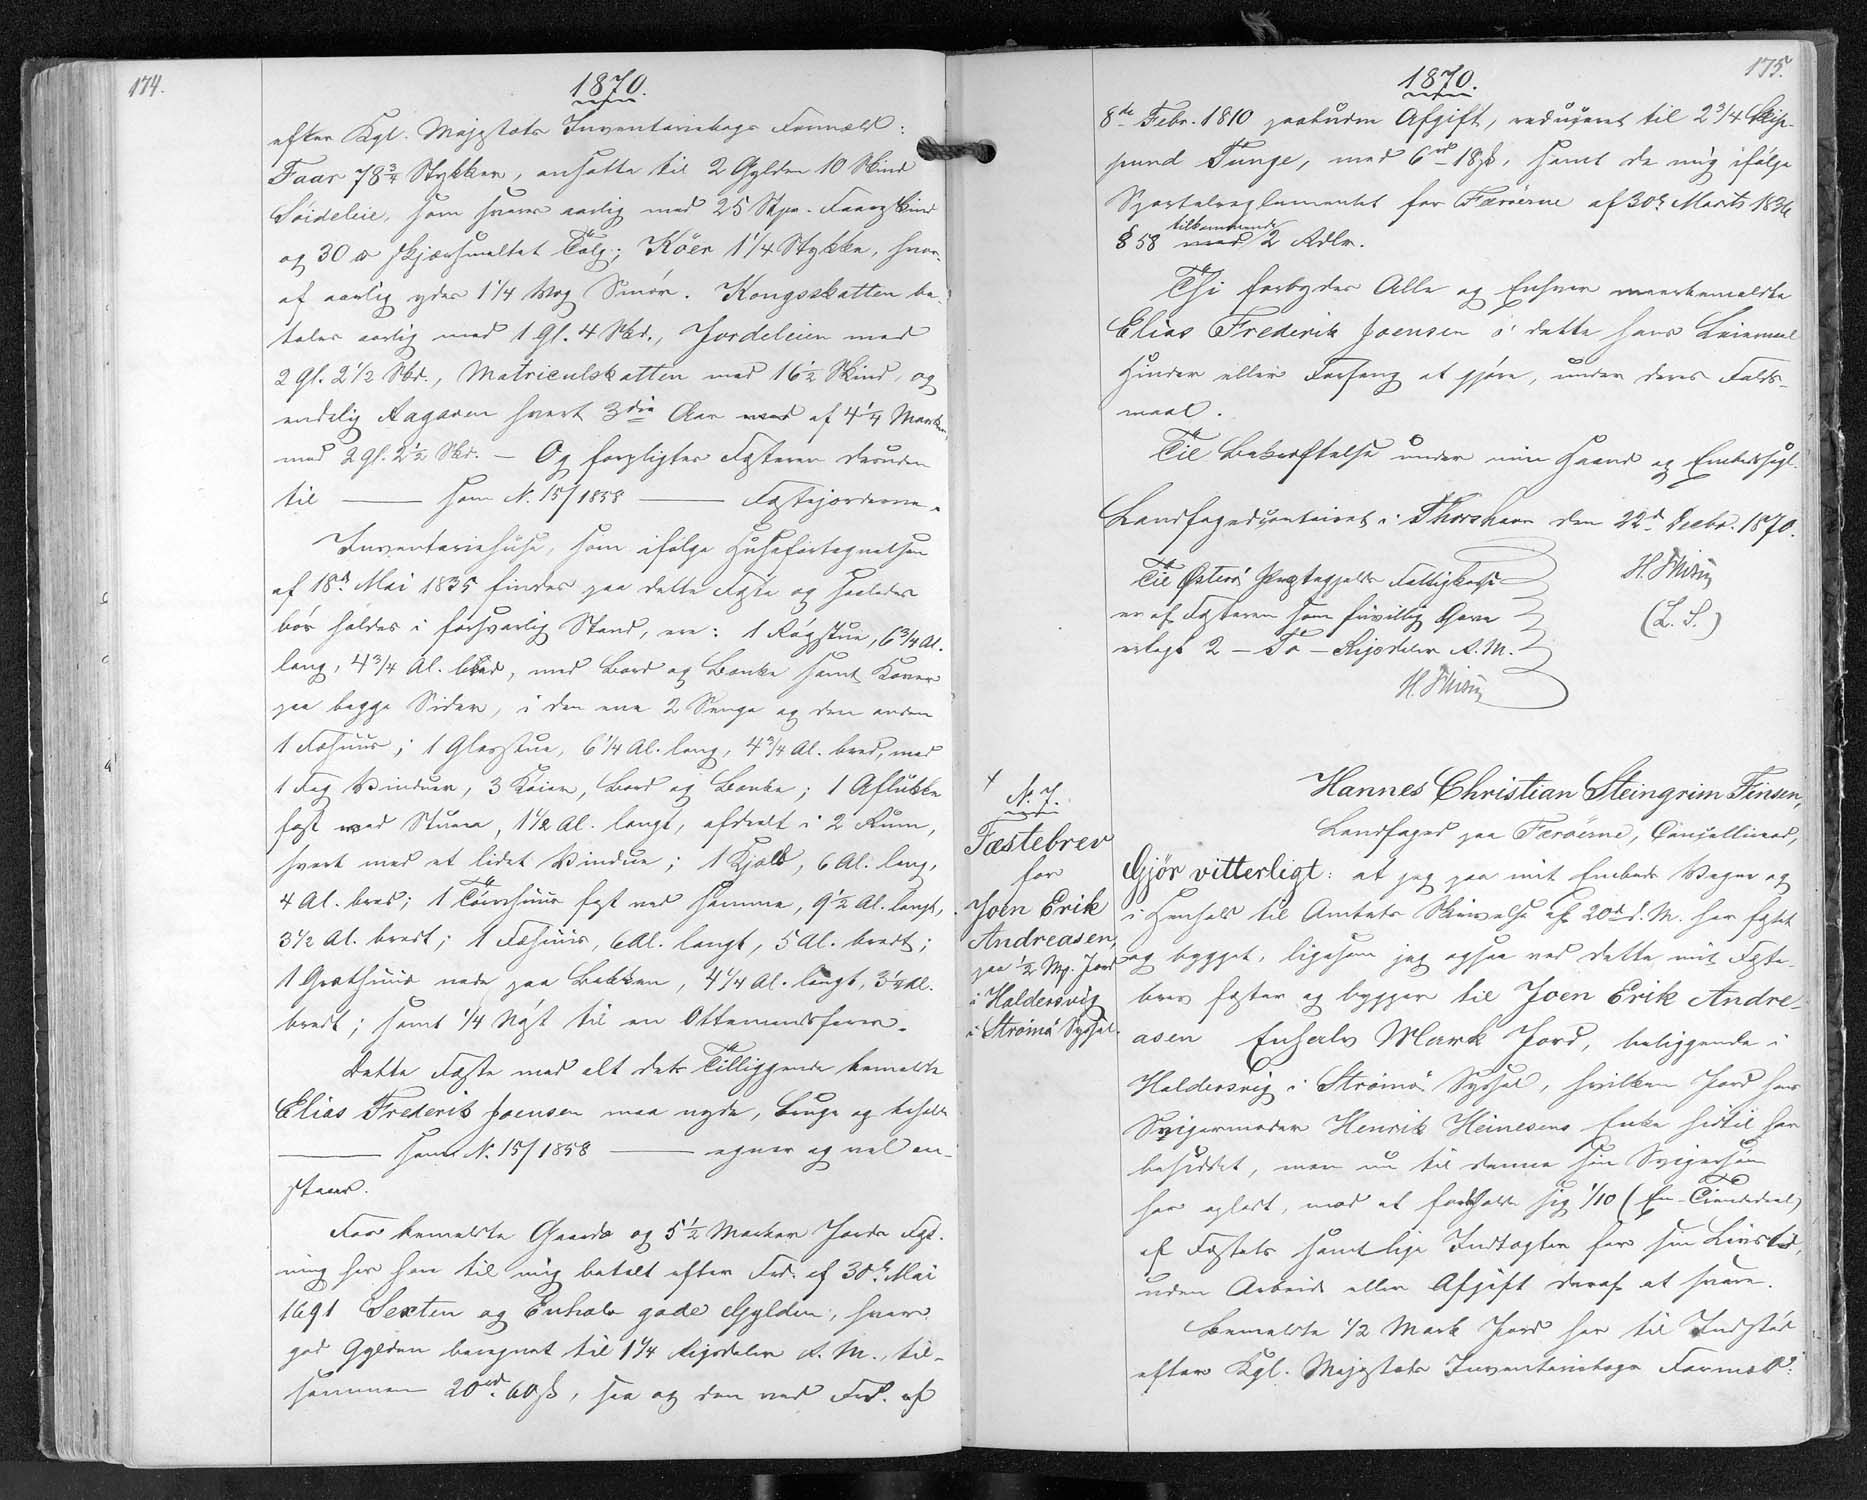 174.
1870.
efter Kgl. Majestæts Inventariebogs Formeld:
Faar 78 3/4 Stykker, ansatte til 2 Gylden 10 Skind
Söideleie, som svares aarlig med 25 Stkr. Faareskind
og 30 ℔ skjærsmeltet Talg; Köer 1 1/4 Stykke, hvor-
af aarlig ydes 1 1/4 Vog Smör. Kongsskatten be-
tales aarlig med 1 Gl. 4 Skd., Jordeleien med
2 Gl. 2 1/2 Skd., Matriculskatten med 16 1/2 Skind, og
endelig Ragaven hvert 3die Aar med af 4 1/4 Marker,
med 2 Gl. 2 1/2 Skd. – Og forpligtes Fæsteren desuden
til —— som N. 15/1858 —— Fæstejorderne.
Inventariehuse, som ifølge Husefortegnelsen
af 18d Mai 1835 findes paa dette Fæste og saaledes
bör holdes i forsvarlig Stand, ere: 1 Rögstue, 6 3/4 Al.
lang, 4 3/4 Al. bred, med Bord og Bænke samt Kover
paa begge Sider, i den ene 2 Senge og den anden
1 Fæhuus; 1 Glasstue, 6 1/4 Al. lang, 4 3/4 Al. bred, med
1 Fag Vinduer, 3 Köier, Bord og Bænke; 1 Aflukke
fast ved Stuen, 1 1/2 Al. langt, afdeelt i 2 Rum,
hvert med et lidet Vindue; 1 Kjæld, 6 Al. lang,
4 Al. bred; 1 Törvhuus fast ved samme, 9 1/2 Al. langt,
3 1/2 Al. bredt; 1 Fæhuus, 6 Al. langt, 5 Al. bredt;
1 Græthuus nede paa Bakken, 4 1/4 Al. langt, 3 1/4 Al.
bredt; samt 1/4 Nöst til en Ottemandsfarer.
Dette Fæste med alt dets Tilliggende bemeldte
Elias Frederik Joensen maa nyde, bruge og beholde
—— som N. 15/1858 —— egner og vel an-
staaer.
For bemeldte Gaards og 5 1/2 Marker Jords Fæst-
ning har han til mig betalt efter Frd. af 30te Mai
1691 Sexten og Enhalv gode Gylden, hver
god Gylden beregnet til 1 1/4 Rigsdaler R. M., til-
sammen 20rd 60ß, saa og den ved Frd. af
175.
1870.
8de Febr. 1810 paabudne Afgift, reduceret til 2 3/4 Skip-
pund Tunge, med 6rd 18ß, samt de mig ifølge
Sportelreglementet for Færöerne af 30te Marts 1836
§ 58 tilkommende med 2 Rdlr.
Thi forbydes Alle og Enhver meerbemeldte
Elias Frederik Joensen i dette hans Leiemaal
Hinder eller Forfang at gjöre, under deres Falds-
maal.
Til Bekræftelse under min Haand og Embedssegl.
Landfogedcontoiret i Thorshavn den 22d Decbr. 1870.
H. Finsen
(L. S.)
Til Österö Præstegjelds Fattigkasse
er af Fæsteren som frivillig Gave
erlagt 2 – To – Rigsdaler R. M.
H. Finsen
N. 7.
Fæstebrev
for
Joen Erik
Andreasen,
paa 1/2 Mg. Jord
i Haldersvig
i Strömö Syssel.
Hannes Christian Steingrim Finsen,
Landfoged paa Færöerne, Cancelliraad,
Gjör vitterligt: at jeg paa mit Embeds Vegne og
i Henhold til Amtets Skrivelse af 20d d. M. har fæstet
og bygget, ligesom jeg ogsaa ved dette mit Fæste-
brev fæster og bygger til Joen Erik Andre-
asen Enhalv Mark Jord, beliggende i
Haldersvig i Strömö Syssel, hvilken Jord hans
Svigermoder Henrik Heinesens Enke hidtil har
besiddet, men nu til denne sin Svigersön
har opladt, mod at forbeholde sig 1/10 (En Tiendedeel)
af Fæstets samtlige Indtægter for sin Livstid,
uden Arbeide eller Afgift deraf at svare.
Bemeldte 1/2 Mark Jord har til Indstöd
efter Kgl. Majestæts Inventariebogs Formeld: